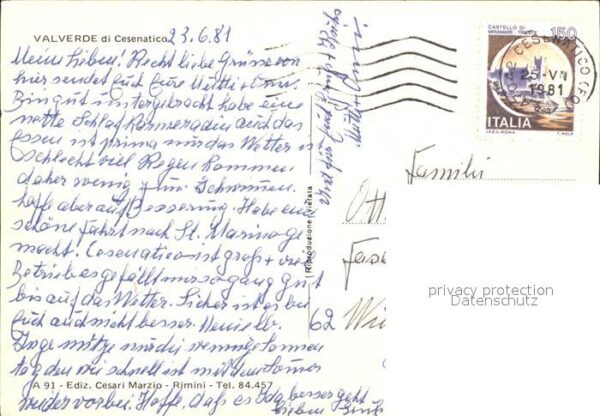 VALVERDE di Cesenatico 23.6.81
Meine Lieben! Recht liebe Grüsse von
hier sendet Euch Eure Mutti + Omi.
Bin gut untergebracht habe eine
nette Schlaf Kammeradin auch das
Essen ist prima nur das Wetter is
schlecht viel Regen kommen
daher wenig zum Schwimmen
hoffe aber auf Besserung. Habe eine
schöne Fahrt nach St. Marino ge
macht. Cesenatico ist groß + viel
Betrieb es gefällt mir so ganz gut
bis auf das Wetter. Sicher ist es bei
Euch auch nicht besser.
Inge nütze nur die wenige Sonnen
tag den wie schnell ist mit dem Sommer
wieder vorbei. Hoffe, daß es Ida besser geht
lieben Gruß
Mutti + Omi
A 91 - Ediz. Cesari Marzio - Rimini - Tel. 84.457
(Riproduzione vietata)
CASTELLO DI
MIRAMARE - TRIESTE
150
ITALIA
I.P.Z.S. - ROMA
CESENATICO (FO)
25-VI
1981
Familie
Ott
62 Wi
privacy protection
Datenschutz